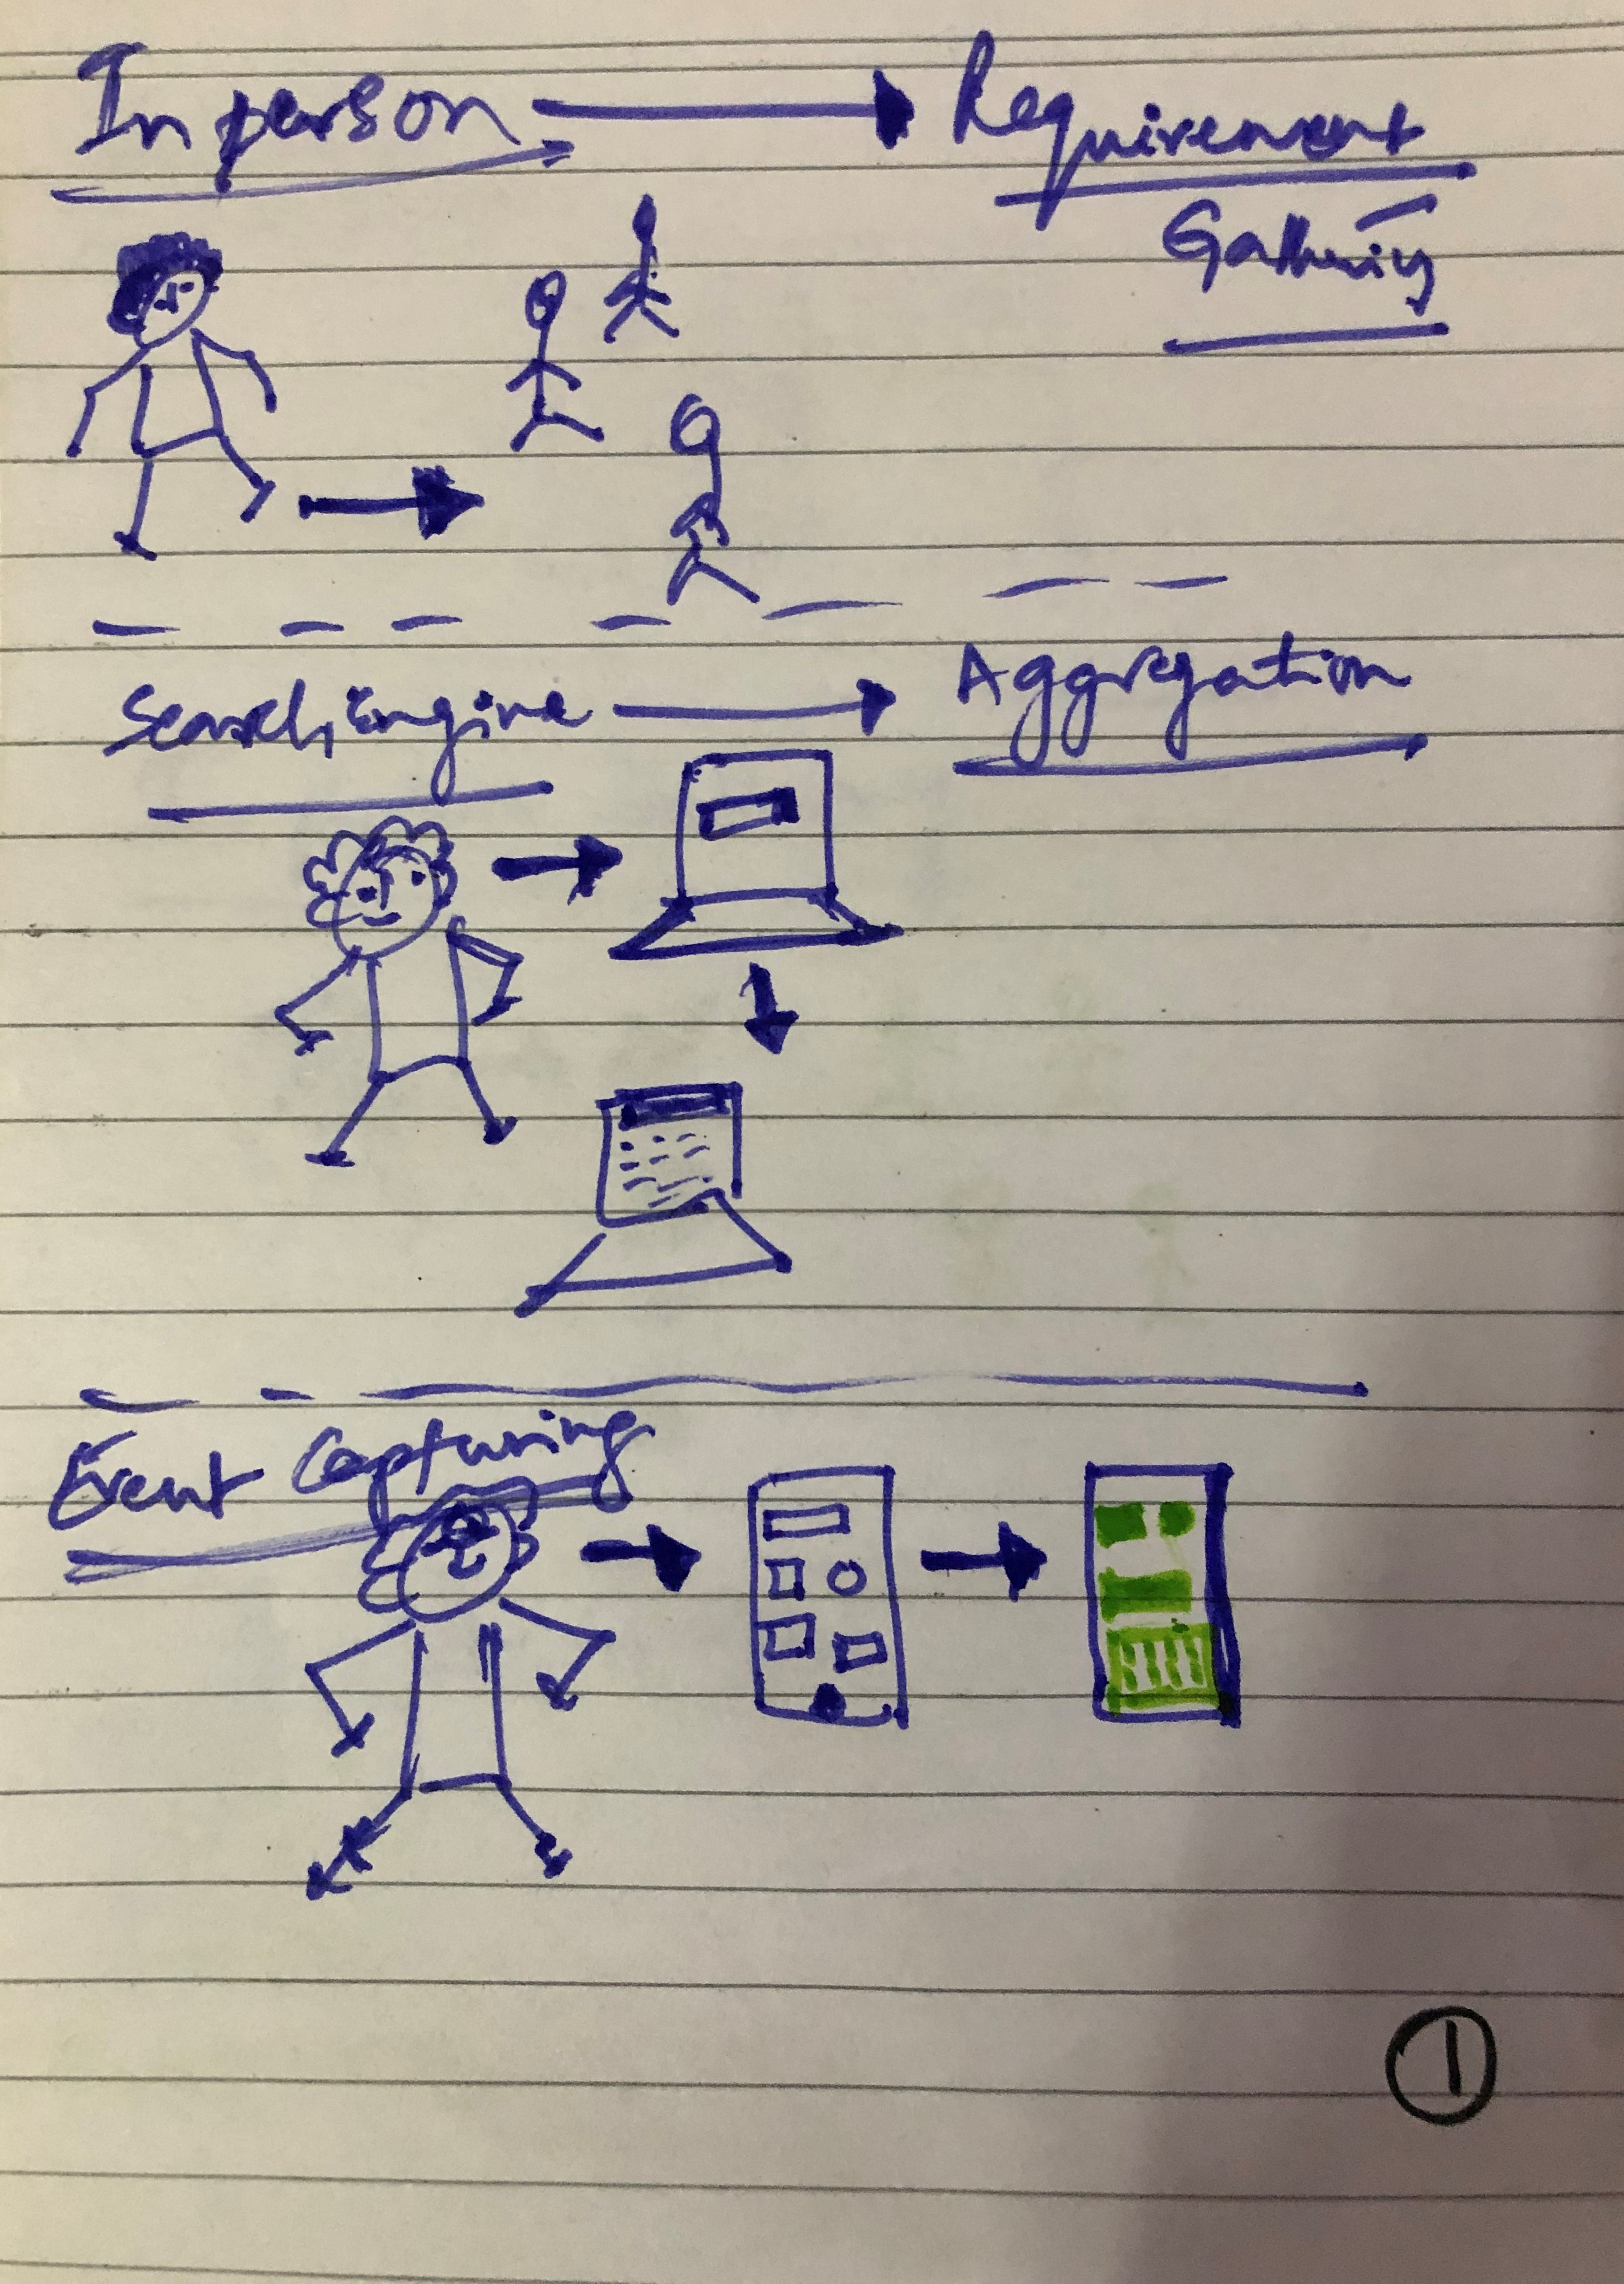 In person Requirement
Gathering
Search Engine Aggregation
Event Capturing
1